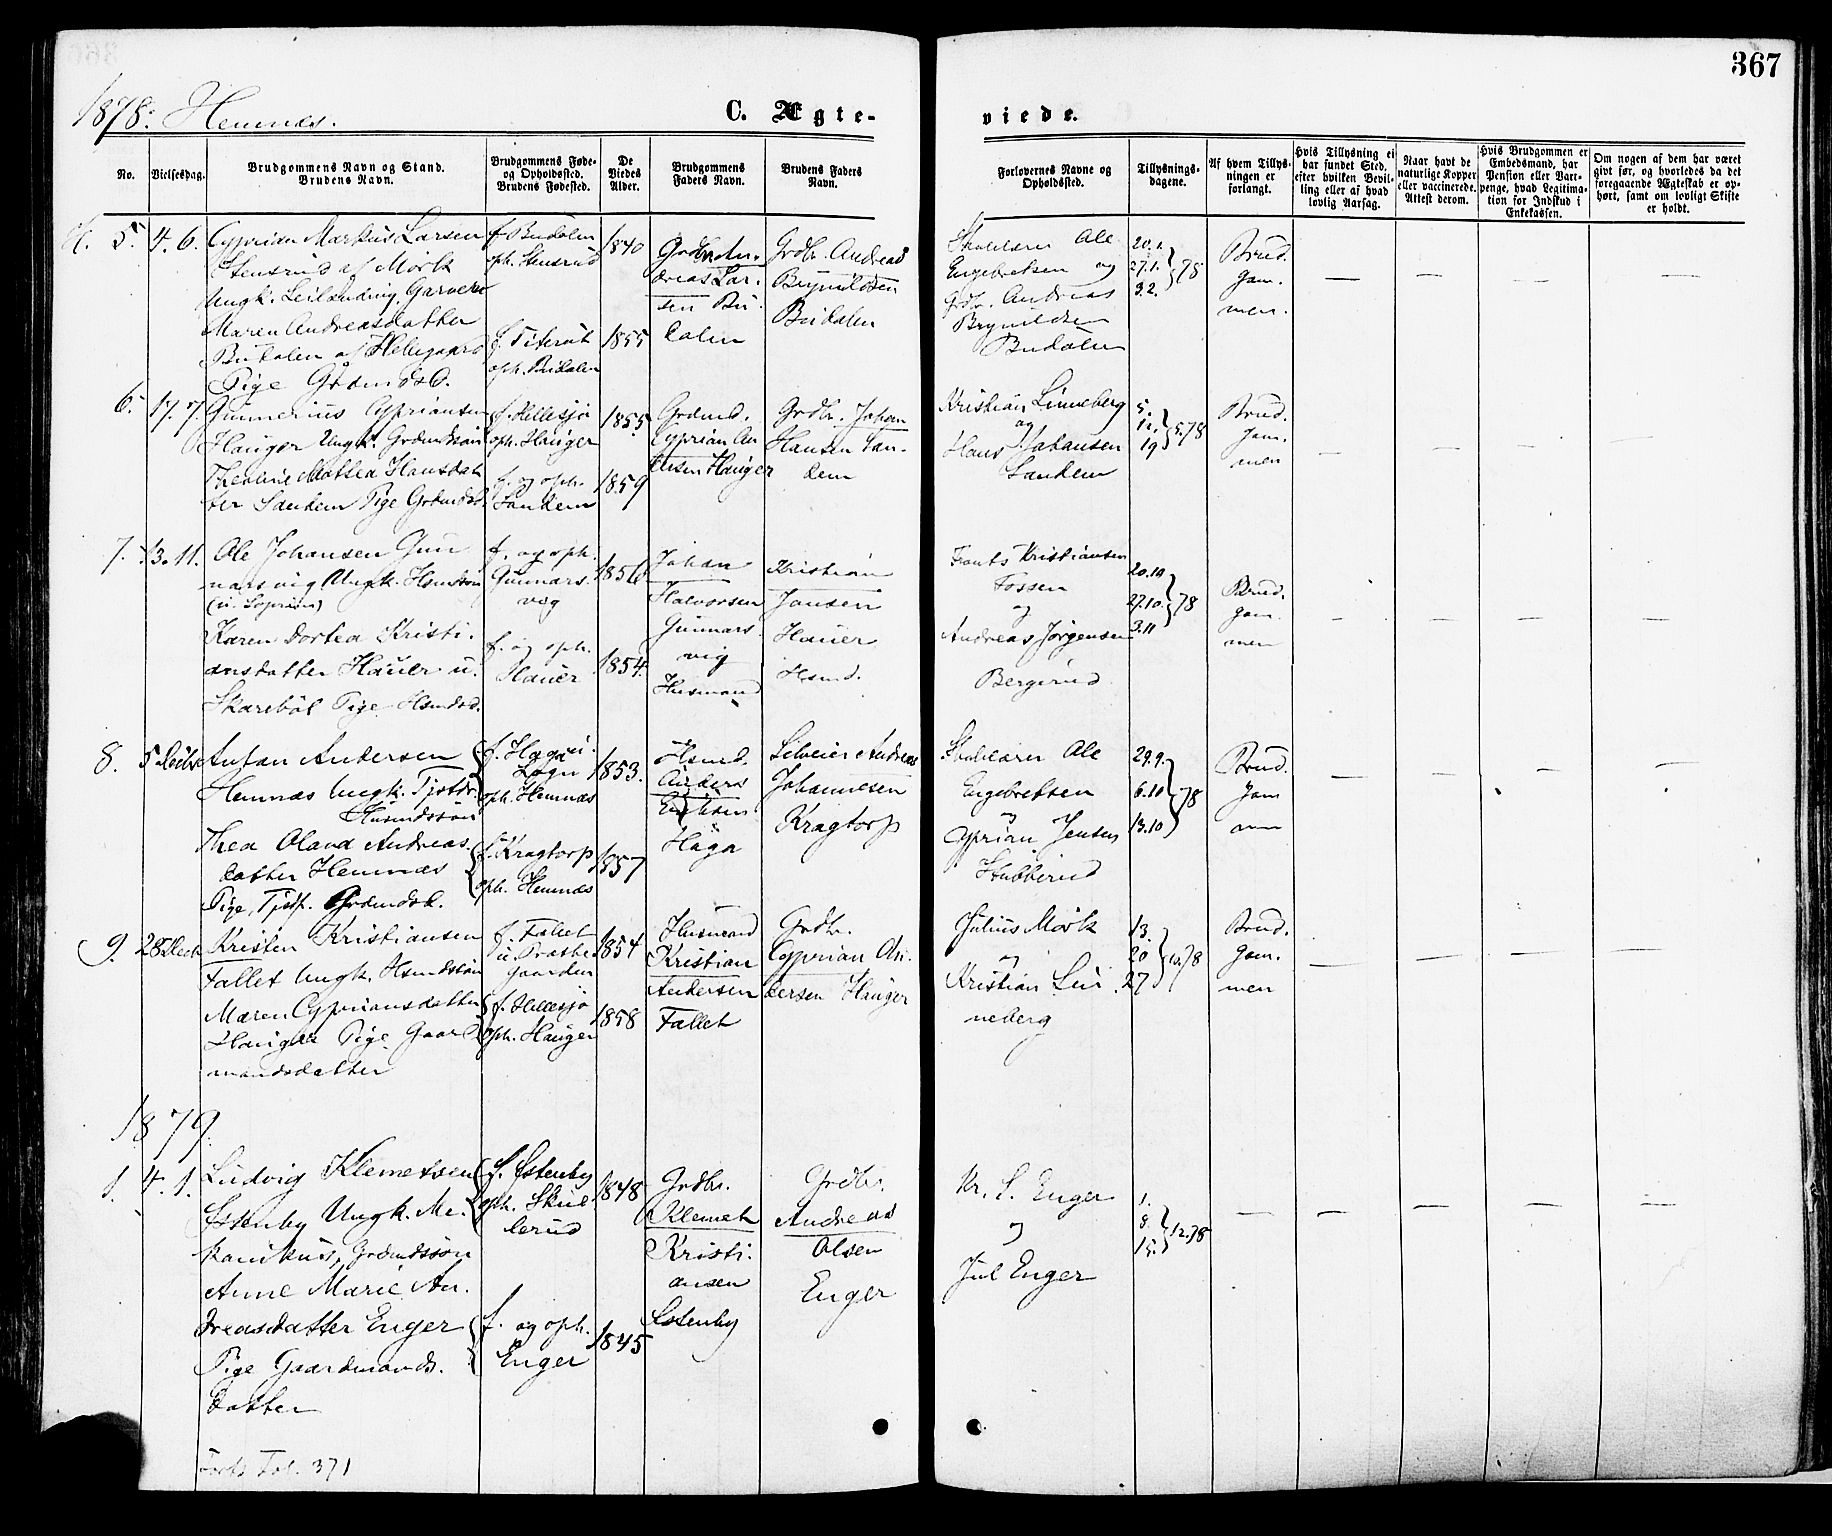 367
1878. Hemnæs.
C. Ægte-
viede.
No.
Vielsesdag.
Brudgommens Navn og Stand.
Brudens Navn.
Brudgommens Føde-
og Opholdssted.
Brudens Fødested.
De
Viedes
Alder.
Brudgommens
Faders Navn.
Brudens Faders
Navn.
Forlovernes Navne og
Opholdssted.
Tillysnings-
dagene.
Af hvem Tillys-
ningen er
forlangt.
Hvis Tillysning ei
har fundet Sted,
efter hvilken Bevil-
ling eller af hvad
lovlig Aarsag.
Naar havt de
naturlige Kopper
eller vaccinerede.
Attest derom.
Hvis Brudgommen er
Embedsmand, har
Pension eller Vart-
penge, hvad Legitima-
tion for Indskud i
Enkekassen.
Om nogen af dem har været
givt før, og hvorledes da det
foregaaende Ægteskab er op-
hørt, samt om lovligt Skifte
er holdt.
H. 5. 4. 6.
Cyprian Markus Larsen
Stensrud af Mørk
Ungk. Leilænding, Garver
Maren Andreasdatter
Budalen af Hellegaard
Pige Grdmdsd.
f. Budalen
oph. Stensrud
f.
oph. Budalen
1840
1855
Grdbr. An-
dreas Lar-
sen Bu-
dalen
Grdbr. Andreas
Brynildsen
Budalen
Skolelærer Ole
Engebretsen og
Grdbr. Andreas
Brynildsen
Budalen
20.1.
27.1. } 78
3.2.
Brud-
gom-
men.
6. 17. 7.
Gunnerius Cypriansen
Hauger Ungk. Grdmdssøn
Theoline Mathea Hansdat
ter Sandem Pige Grdmdsd.
f. Hellesjø
oph. Hauger
f. og oph.
Sandem
1855
1859
Grdmd.
Cyprian An
dersen Hauger
Grdbr. Johan
Hansen San-
dem
Kristian Linneberg
og
Hans Johansen
Sandem
5.
12. } 5.78
19
Brud-
gom-
men
7. 13. 11.
Ole Johansen Gun
narsvig Ungk. Hsmdssøn
Karen Dortea Kristi-
ansdatter Hauer u.
Skarebøl Pige Hsmdsd.
f. og oph.
Gunnars-
vig
f. og oph.
Hauer
1856
1854.
Johan
Halvorsen
Gunnars-
vig
Husmand
Kristian
Jansen
Hauer
Hsmd.
Frants Kristiansen
Fossen
og
Andreas Jørgensen
Bergerud
20.10
27.10. } 78
3.11
Brud-
gom-
men
8. 5 Decbr
Anton Andersen
Hemnæs Ungk. Tjstdr.
Husmdssøn
Thea Olava Andreas-
datter Hemnæs
Pige, Tjstp. Grdmdsd.
f. Haga u.
oph. Hemnæs
f. Kragtorp
oph. Hemnæs
1853.
1857
Hsmd.
Anders
Eriksen
Haga
Selveier Andreas
Johannesen
Kragtorp
Skolelærer Ole
Engebretsen
og
Cyprian Jensen
Stubberud
29.9.
6.10 } 78
13.10
Brud-
gom
men
9. 28 Decb
Kristen Kristiansen
Fallet Ungk. Hsmdssøn
Maren Cypriansdatter
Hauger Pige Gaard-
mandsdatter
f. Fallet
u. Præste-
gaarden
f. Hellesjø
oph. Hauger
1854
1858
Husmand
Kristian
Andersen
Fallet
Grdbr.
Cyprian An-
dersen Hauger
Julius Mørk
og
Kristian Lin-
neberg
13.
20 } 10.78
27
Brud-
gom-
men
1879.
1. 4. 1.
Ludvig Klemetsen
Østenby Ungk. Me-
kanikus, Grdmdssøn
Anne Marie An-
dreasdatter Enger
Pige Gaardmands-
datter
f. Østenby
oph. Skul-
lerud
f. og oph.
Enger
1848
1845
Grdbr.
Klemet
Kristi-
ansen
Østenby
Grdbr.
Andreas
Olsen
Enger
Kr. S. Enger
og
Jul Enger
1.
8. } 12.78
15.
Forts. Fol. 371